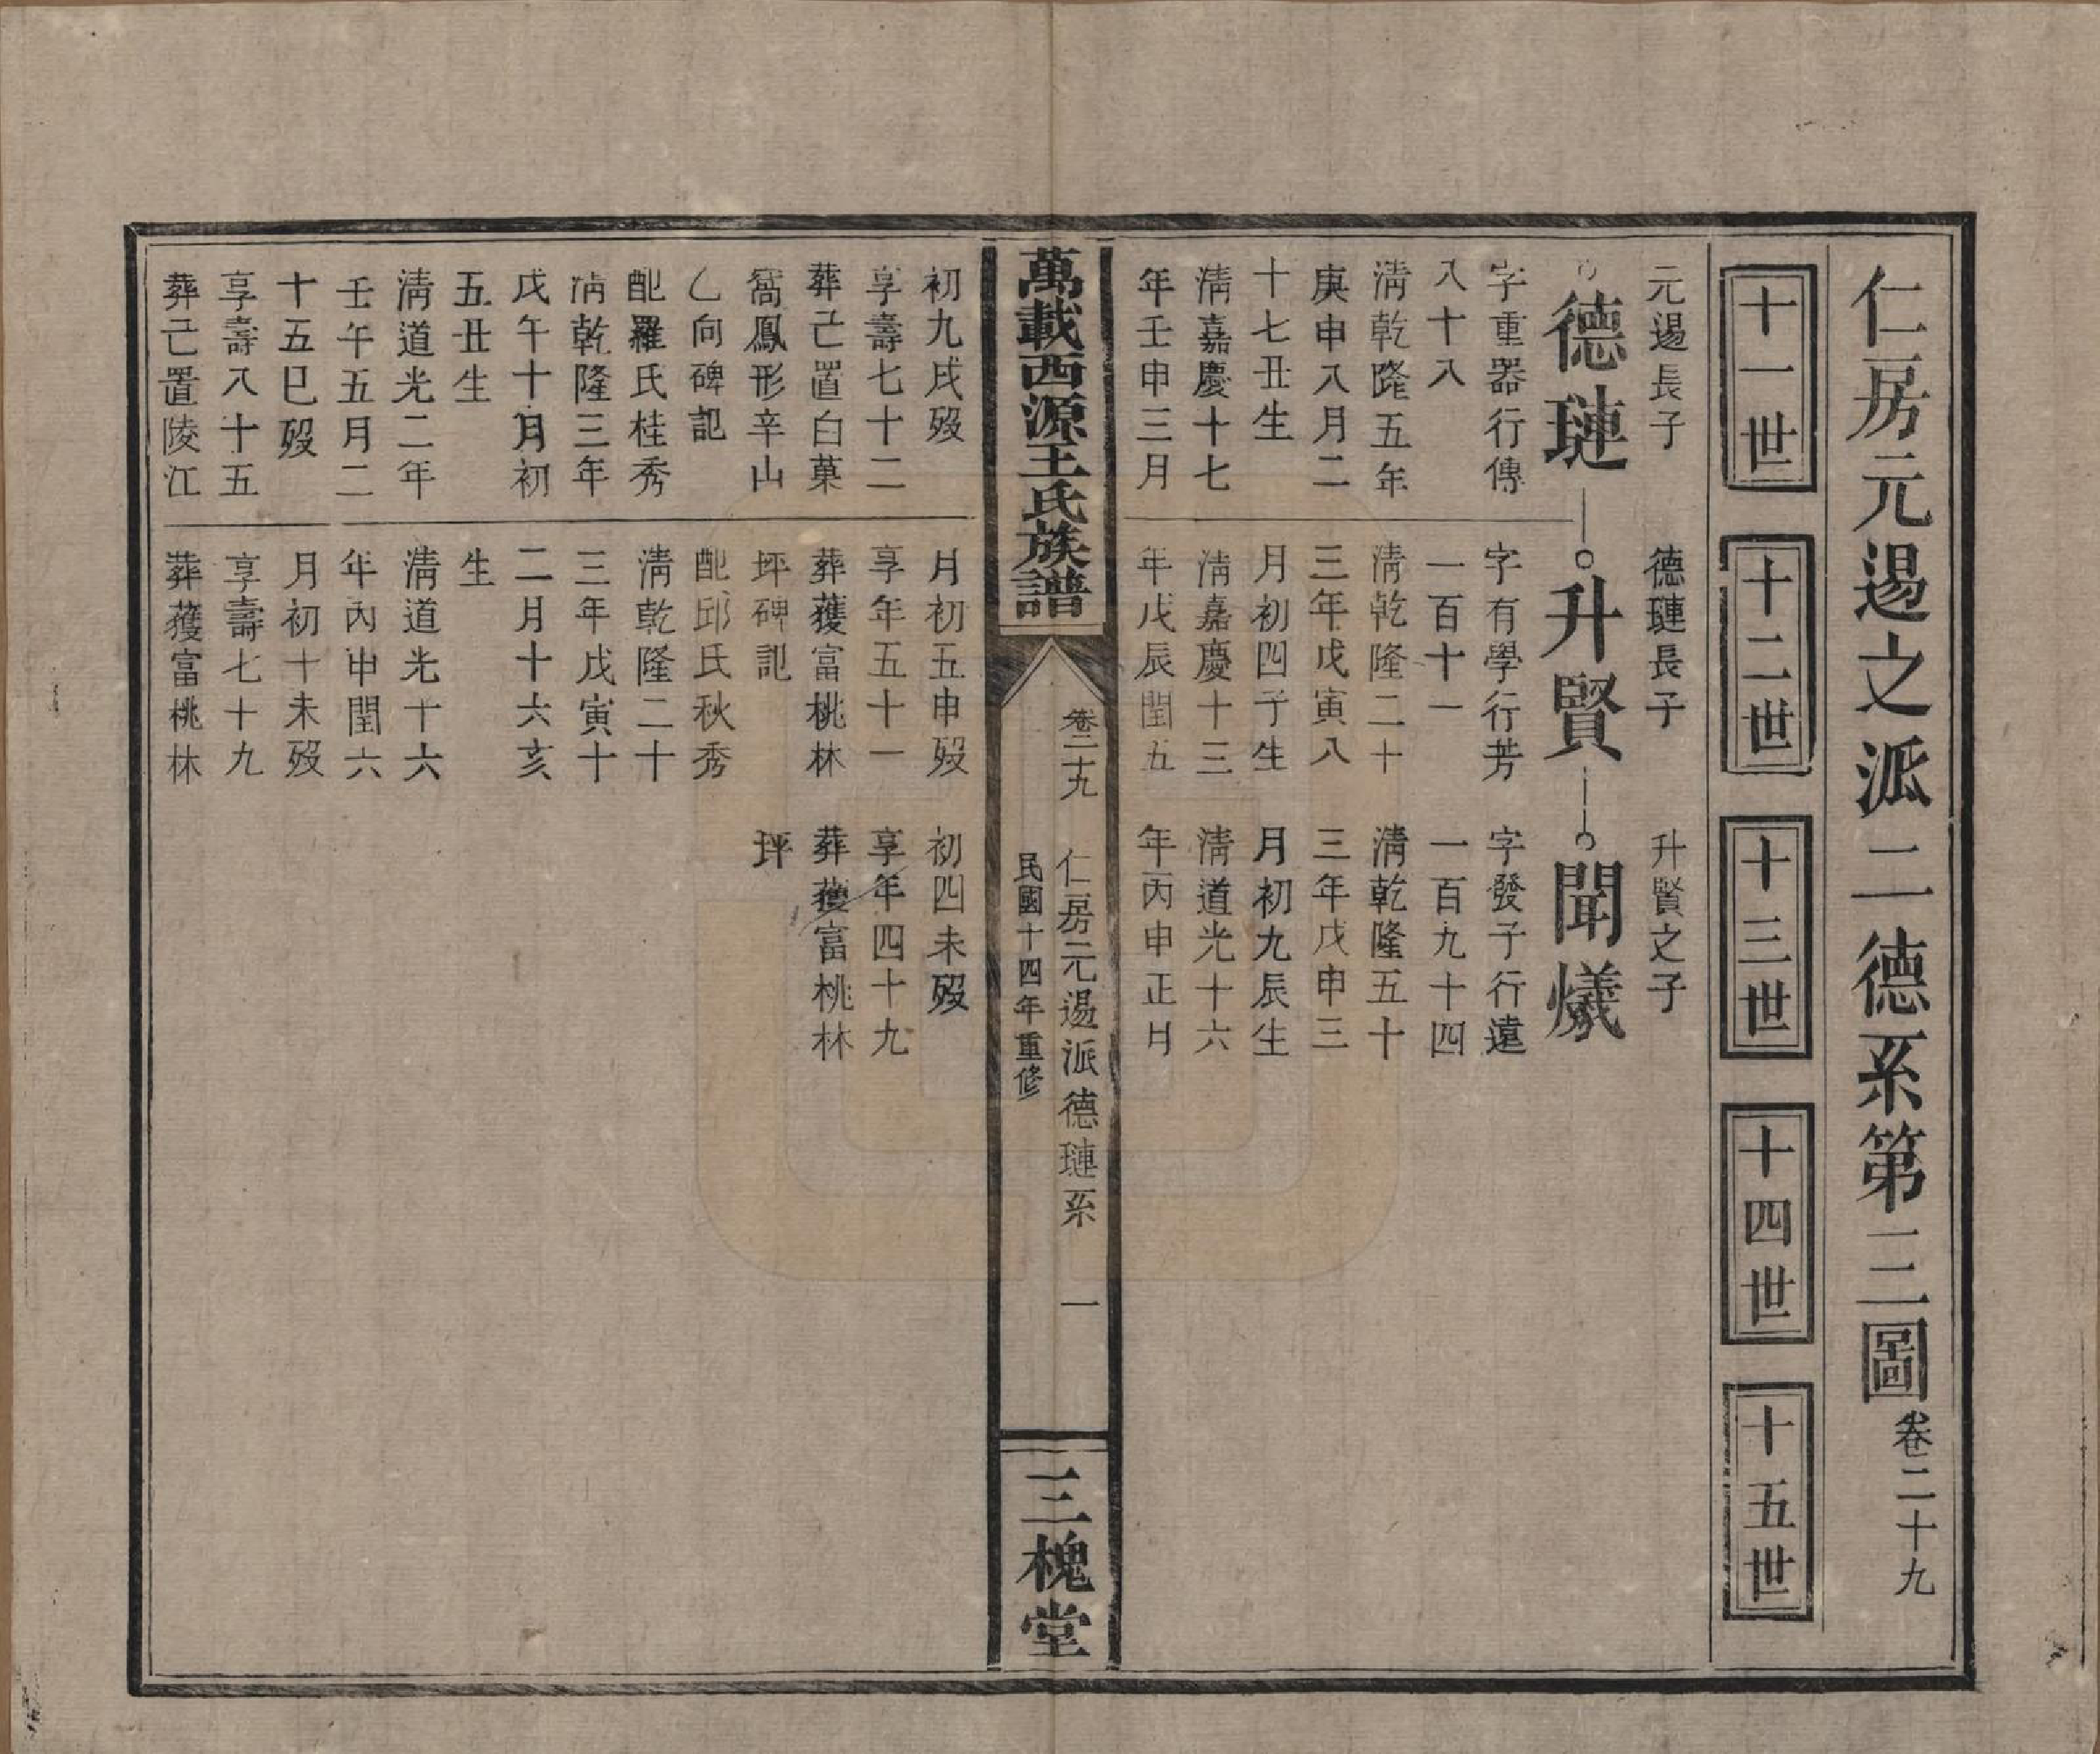 仁房元逿之派二德系第三圖卷二十九
十一世
十二世
十三世
十四世
十五世
元逿長子
德璉
字重器行傳
八十八
清乾隆五年
庚申八月二
十七丑生
清嘉慶十七
年壬申三月
初九戌歿
享壽七十二
葬己置白菓
窩鳳形辛山
乙向碑記
配羅氏桂秀
清乾隆三年
戊午十月初
五丑生
清道光二年
壬午五月二
十五巳歿
享壽八十五
葬己置陵江
德璉長子
升賢
字有學行芳
一百十一
清乾隆二十
三年戊寅八
月初四子生
清嘉慶十三
年戊辰閏五
月初五申歿
享年五十一
葬蒦富桃林
坪碑記
配邱氏秋秀
清乾隆二十
三年戊寅十
二月十六亥
生
清道光十六
年丙申閏六
月初十未歿
享壽七十九
葬蒦富桃林
升賢之子
聞爔
字發子行遠
一百九十四
清乾隆五十
三年戊申三
月初九辰生
清道光十六
年丙申正月
初四未歿
享年四十九
葬蒦富桃林
坪
萬載西源王氏族譜
卷二十九 仁房元逿派德璉系 一
民國十四年重修
三槐堂